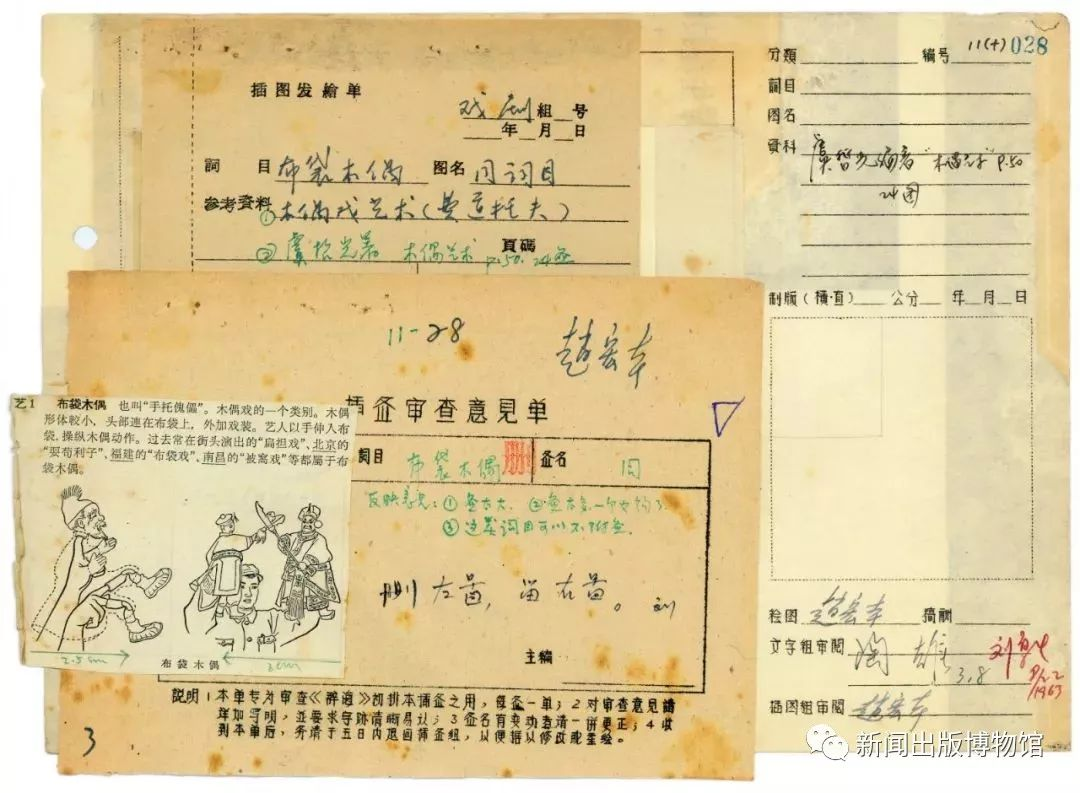 插图发繪单
戏剧組__号
__年__月__日
詞 目 布袋木偶 图名 同词目
参考資料 ①木偶戏艺术(费道托夫)
頁碼
② 虞哲光著 木偶艺术 p.50. 24图
分類 編号 11(十)028
詞目
图名
資料 虞哲光编著“木偶艺术”p.50
24图
制版(横·直)__公分__年__月__日
11-28
赵宏本
插図审查意見单
詞目 布袋木偶 図名 同
反映意見:①図太大. ②図太多,一个女的了.
③这类词目可以不附図.
删左图,留右图。 刘
主編
說明:1本单专为审查《辞海》初排本插図之用,每図一单;2对审查意見請
詳加写明,並要求字跡清晰易认;3図名有変动这請一併更正;4收
到本单后,务請于五日内退回插図組,以便据以修改或重繪。
3
艺1 布袋木偶 也叫“手托傀儡”。木偶戏的一个类别。木偶
形体較小,头部連在布袋上,外加戏装。艺人以手伸入布
袋,操纵木偶动作。过去常在街头演出的“扁担戏”、北京的
“耍苟利子”、福建的“布袋戏”、南昌的“被窩戏”等都屬于布
袋木偶。
2.5cm
布袋木偶
3cm
绘图 赵宏本 摘制
文字組审閱 陶雄 3.8
1963
插图組审閱 赵宏本
新闻出版博物馆